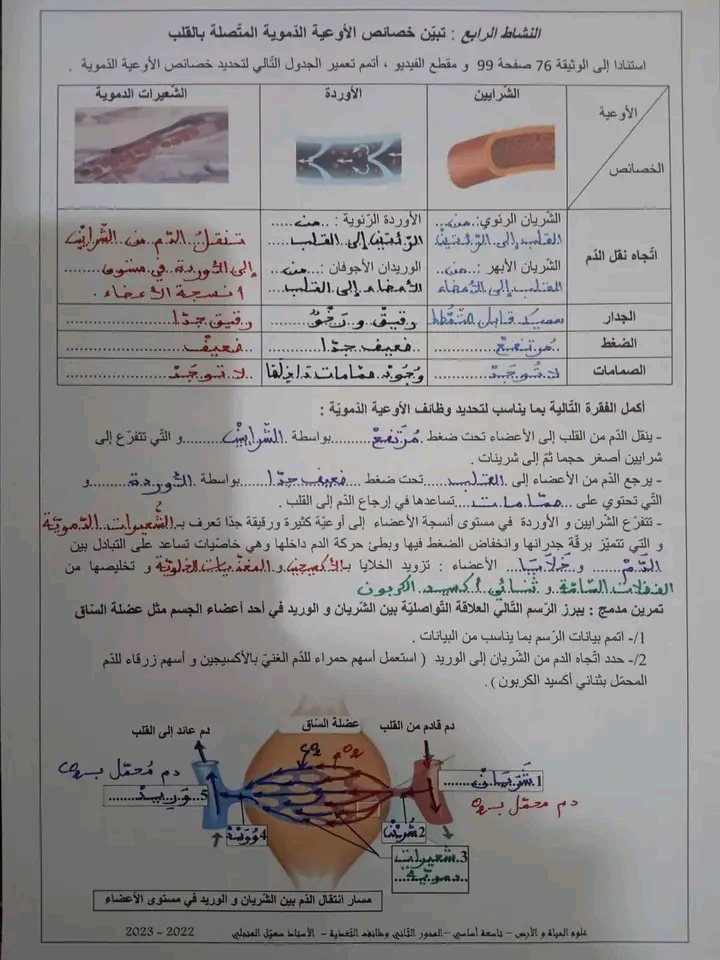 النشاط الرابع : تبيّن خصائص الأوعية الدّموية المتّصلة بالقلب
استنادا إلى الوثيقة 76 صفحة 99 و مقطع الفيديو ، أتمم تعمير الجدول التّالي لتحديد خصائص الأوعية الدّموية .
الأوعية
الخصائص
الشّرايين
الأوردة
الشّعيرات الدموية
اتّجاه نقل الدّم
الشّريان الرئوي: ..من..
القلب إلى الرّئتين
الشّريان الأبهر : ..من..
القلب إلى الأعضاء
الأوردة الرّئوية : ..من.....
الرّئتين إلى القلب
الوريدان الأجوفان : ..من
الأعضاء إلى القلب
تنقل الدّم من الشّرايين
إلى الأوردة في مستوى
أنسجة الأعضاء .
الجدار
سميك قابل للتّمطّط
رقيق و رَخْوٌ
رقيق جدّا
الضغط
مُرتفعٌ
ضعيف جدّا
ضعيف
الصمامات
لا تُوجَدُ
وُجُود صمّامات داخلها
لا توجَدُ
أكمل الفقرة التّالية بما يناسب لتحديد وظائف الأوعية الدّمويّة :
- ينقل الدّم من القلب إلى الأعضاء تحت ضغط ..مُرتفعْ..........بواسطة ..الشّرايين..........و الّتي تتفرّع إلى
شرايين أصغر حجما ثمّ إلى شرينات .
- يرجع الدّم من الأعضاء إلى ..القلب......تحت ضغط ..ضعيف جدّا........بواسطة ..الأوردة........و
الّتي تحتوي على ...صمّامات...تساعدها في إرجاع الدّم إلى القلب .
- تتفرّع الشّرايين و الأوردة في مستوى أنسجة الأعضاء إلى أوعيّة كثيرة ورقيقة جدّا تعرف بـ الشُّعيرات الدّمويّة
و التي تتميّز برقّة جدرانها وانخفاض الضغط فيها وبطئ حركة الدم داخلها وهي خاصّيات تساعد على التبادل بين
الدّم ... و خلايا... الأعضاء : تزويد الخلايا بـ الأكسيجين و المغذّيات الخلويّة و تخليصها من
الفضلات السّامّة و ثنائي أكسيد الكربون
تمرين مدمج : يبرز الرّسم التّالي العلاقة التّواصليّة بين الشّريان و الوريد في أحد أعضاء الجسم مثل عضلة الساق
1/- اتمم بيانات الرّسم بما يناسب من البيانات .
2/- حدد اتّجاه الدم من الشّريان إلى الوريد ( استعمل أسهم حمراء للدّم الغنيّ بالأكسيجين و أسهم زرقاء للدّم
المحمّل بثنائي أكسيد الكربون ) .
دم قادم من القلب
عضلة السّاق
دم عائد إلى القلب
O2
CO2
1.شَريَان
دم محمّل بـ O2
2.شُرَيْن
3.شعيرات
دمويّة
4.وُرَيْد
5.وَرِيد
دم مُحمّل بـ CO2
مسار انتقال الدّم بين الشّريان و الوريد في مستوى الأعضاء
علوم الحياة و الأرض – تاسعة أساسي – المحور الثّاني وظائف التّغذية - الأستاذ سهيّل المنجلي
2022 - 2023